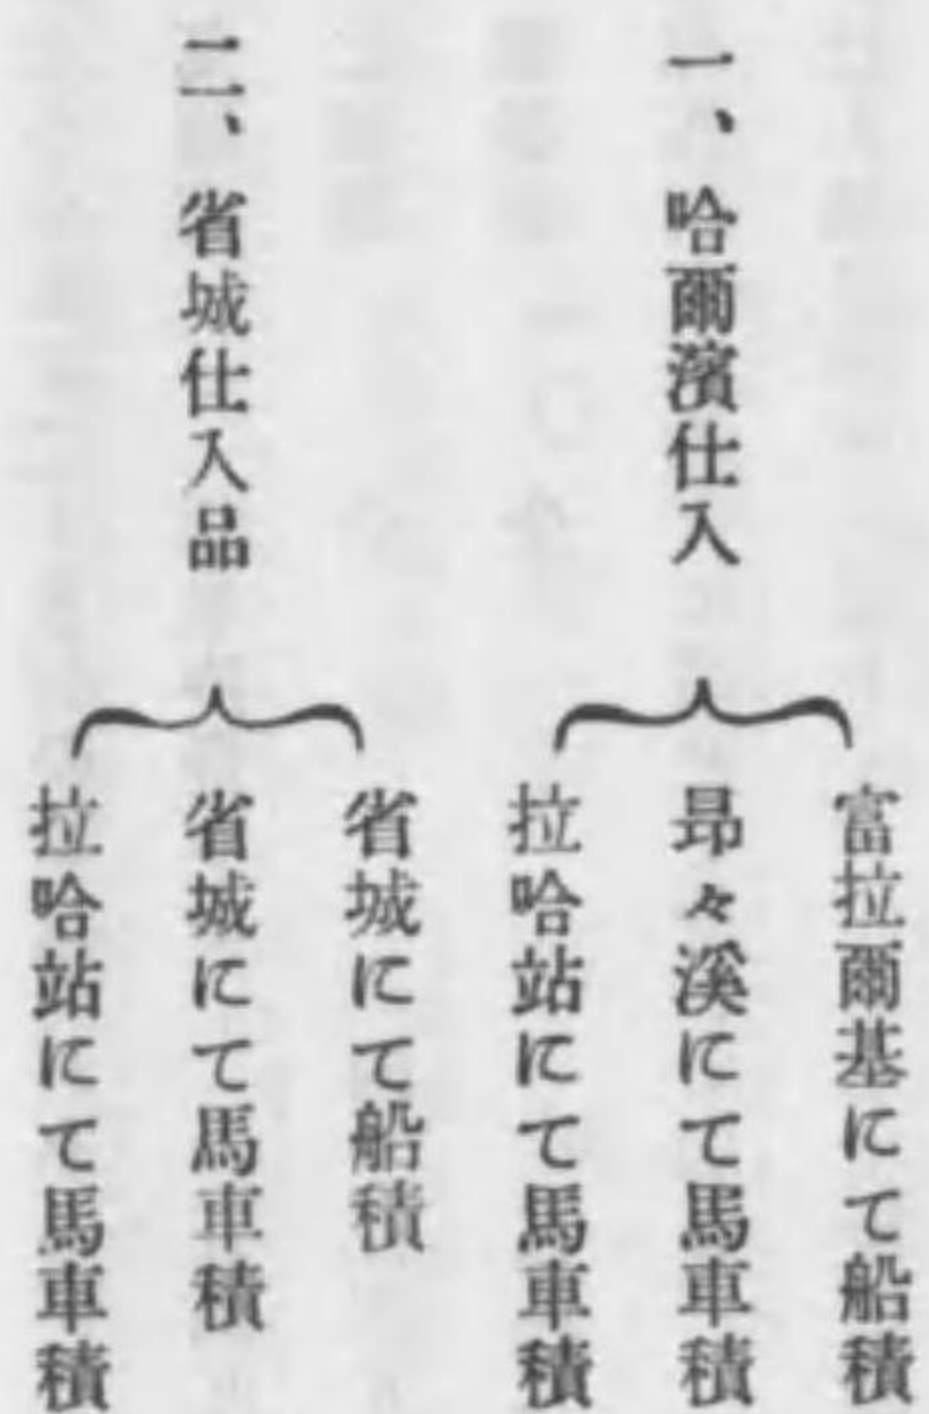 一、哈爾濱仕入
富拉爾基にて船積
昻々溪にて馬車積
拉哈站にて馬車積
二、省城仕入品
省城にて船積
省城にて馬車積
拉哈站にて馬車積